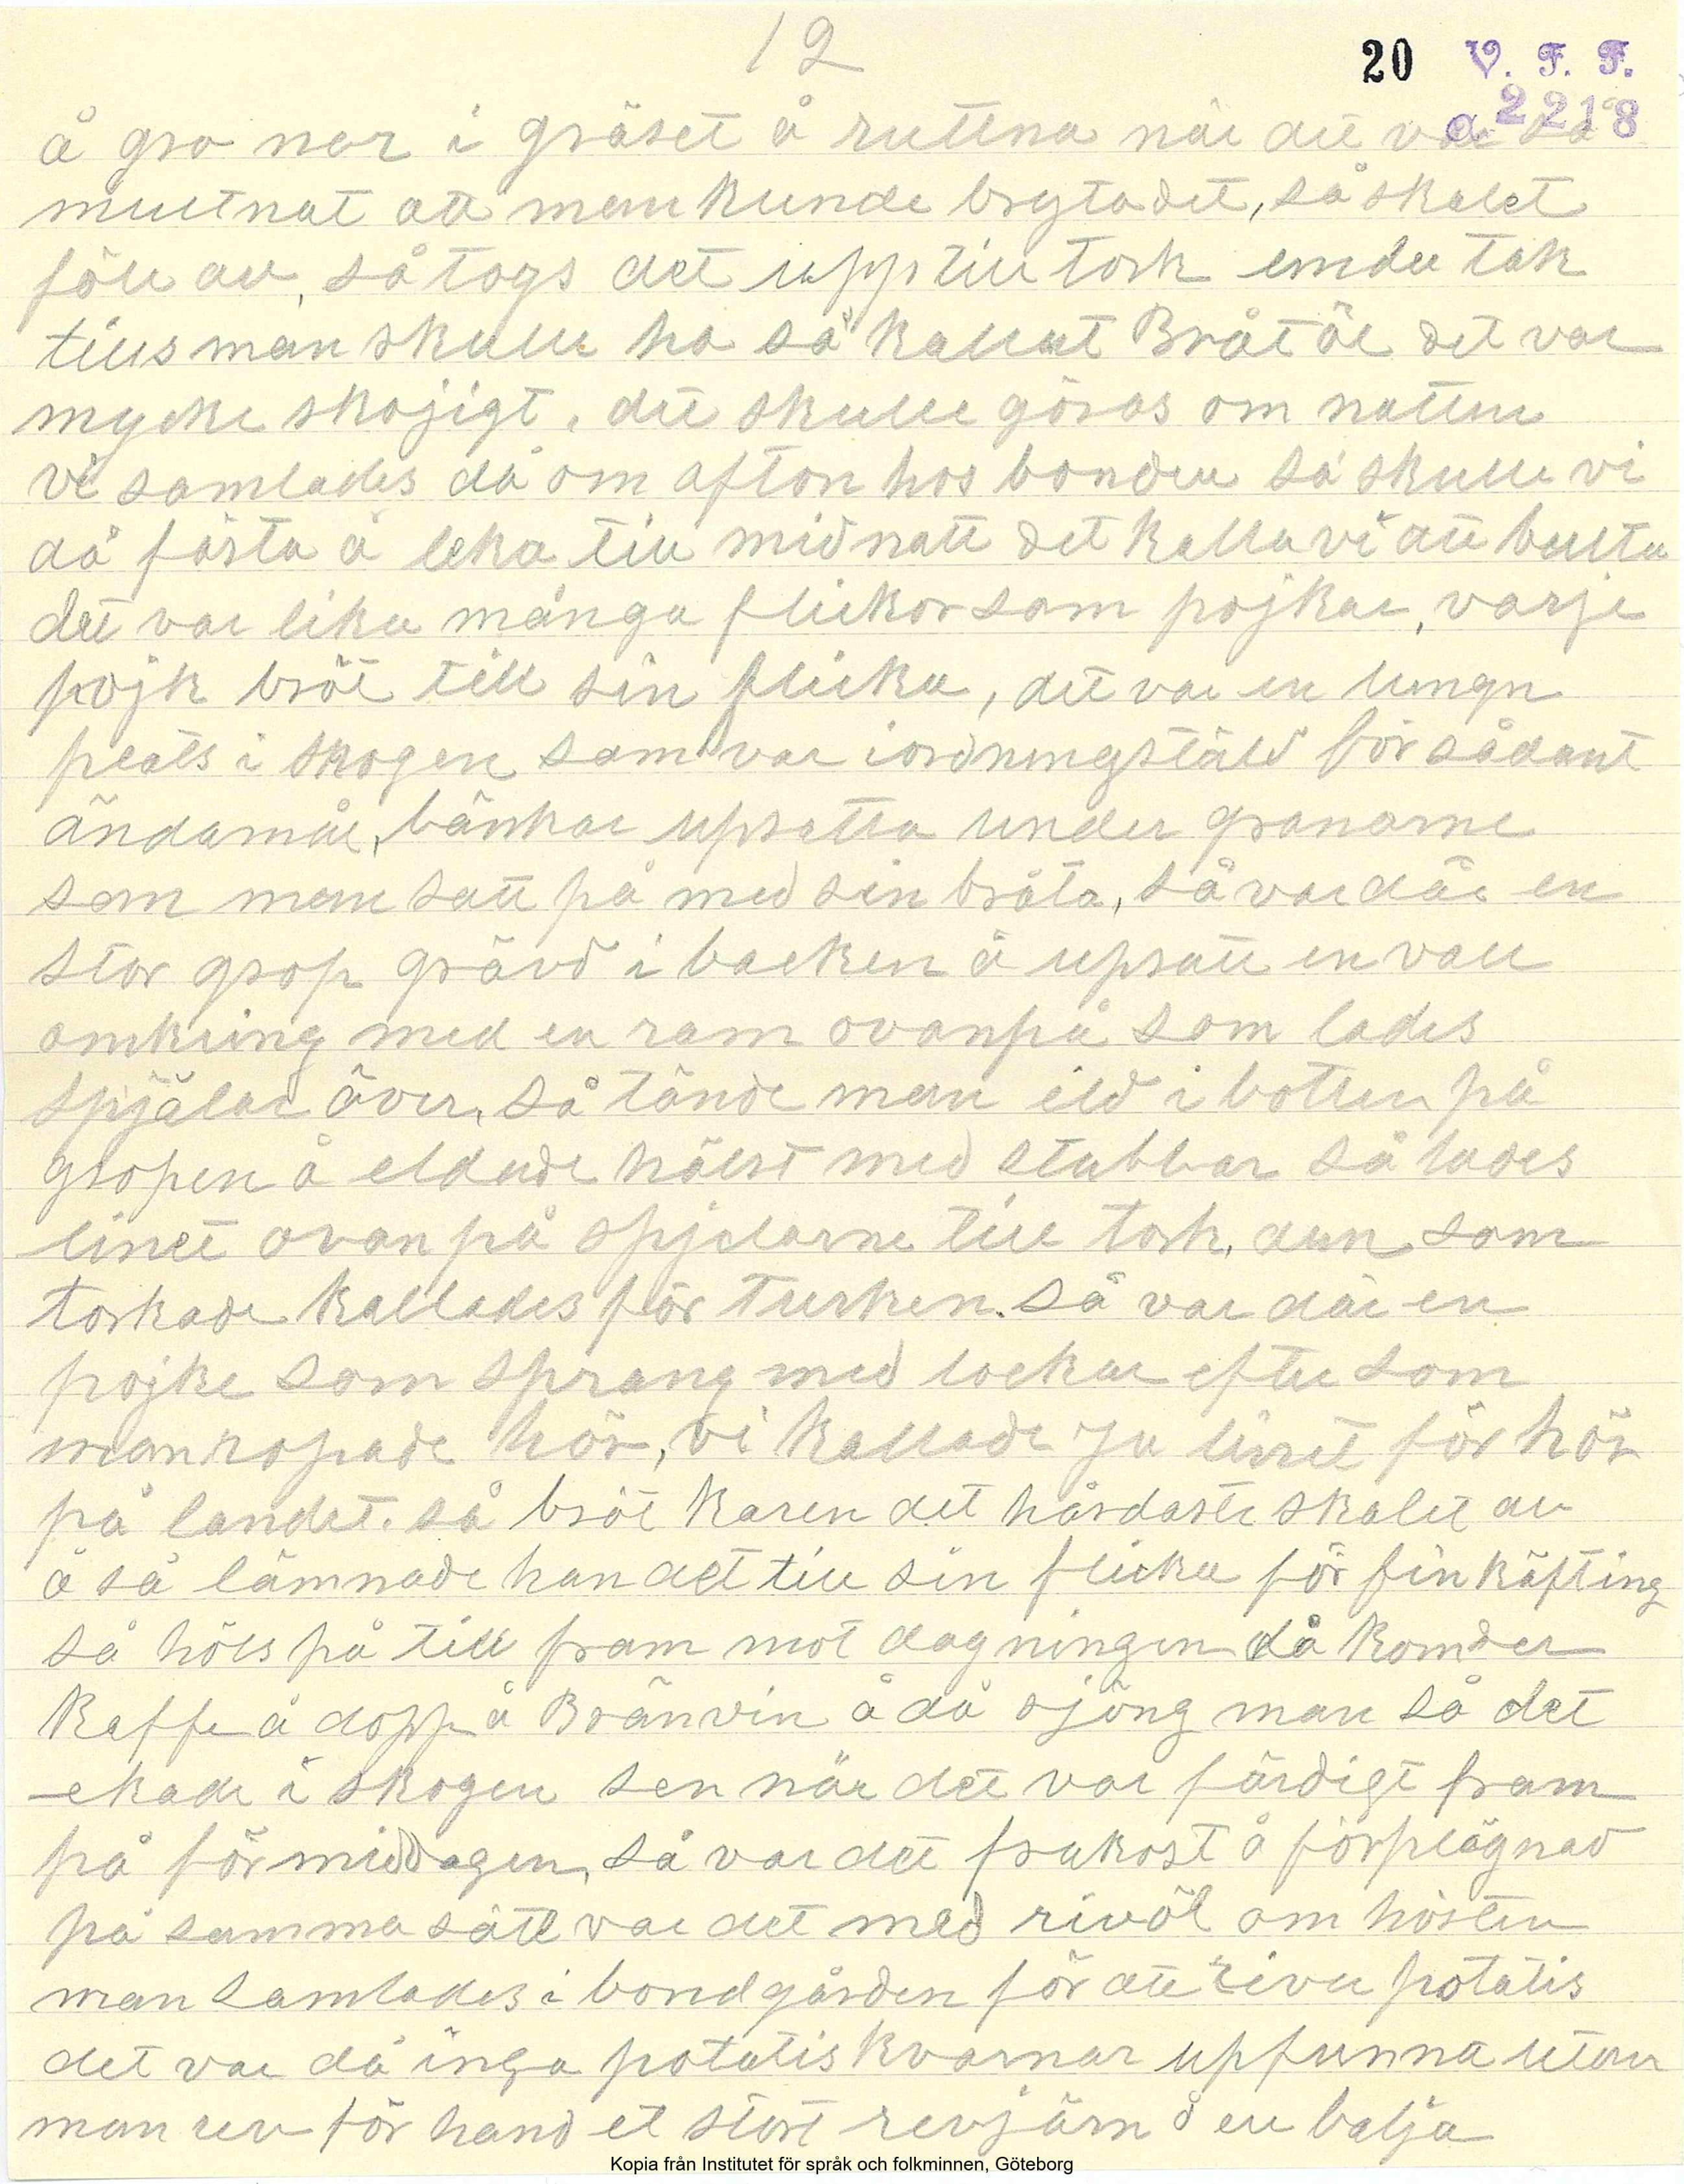 12
20 V. F. F.
a 2218
å gro ner i gräset å ruttna når dtt var så
muttnat att man kunde brytadet, så skalet
föll av, så togs det upp till tork under tak
tills man skulle ha så kallat Bråtöl det var
mycke skojigt. det skulle göras om natten
vi samlades då om afton hos bonden så skulle vi
då fösta å leka till midnatt det kalla vi att bulta
det var lika många flickor som pojkar, varje
pojk bröt till sin flicka, det var en lungn
plats i skogen som var iordningstäld för sådant
ändamål, bänkar upsatta under granarne
som man satt på med sin bråta, så var där en
stor grop grävd i backen å upsatt en vall
omkring med en ram ovanpå som lades
spjälar över, så tände man eld i botten på
gropen å eldade hälst med stubbar så lades
linet ovan på spjelarne till tork, den som
torkade kallades för Turken. Så var där en
pojke som sprang med lockar efter som
man ropade hör, vi kallade ju linet för hör
på landet. så bröt karen det hårdaste skalet av
å så lämnade han det till sin flicka för finkäfting
så höls på till fram mot dagningen då kom der
Kaffe å dopp å Bränvin å då sjöng man så det
ekade i skogen sen när det var färdigt fram
på förmiddagen, så var det frukost å förplägnad
på samma sätt var det med rivöl om hösten
man samlades i bondgården för att riva potatis
det var då inga potatiskvarnar upfunna utan
man rev för hand et stort revjärn å en balja
Kopia från Institutet för språk och folkminnen, Göteborg